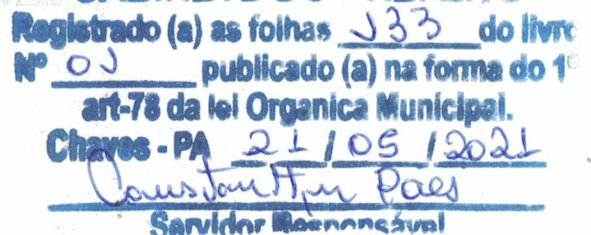 Registrado (a) as folhas 133 do livro
Nº 01 publicado (a) na forma do 1º
art-78 da lei Organica Municipal.
Chaves - PA 21 / 05 / 2021
Paes
Servidor Responsável